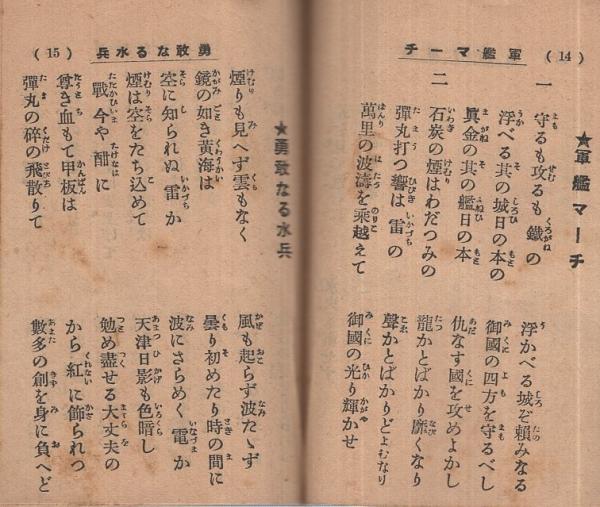 (14) 軍艦マーチ
★軍艦マーチ
一 守るも攻るも鐵の 浮かべる城ぞ頼みなる
浮べる其の城日の本の 御國の四方を守るべし
眞金の其の艦日の本 仇なす國を攻めよかし
二 石炭の煙はわだつみの 龍かとばかり靡くなり
彈丸打つ響は雷の 聲かとばかりどよむなり
萬里の波濤を乘越えて 御國の光り輝かせ
勇敢なる水兵 (15)
★勇敢なる水兵
煙りも見へず雲もなく 風も起らず波たゝず
鏡の如き黄海は 曇り初めたり時の間に
空に知られぬ雷か 波にさらめく電か
煙は空をたち込めて 天津日影も色暗し
戰今や酣に 勉め盡せる大丈夫の
尊き血もて甲板は から紅に飾られつ
彈丸の碎の飛散りて 數多の創を身に負へど